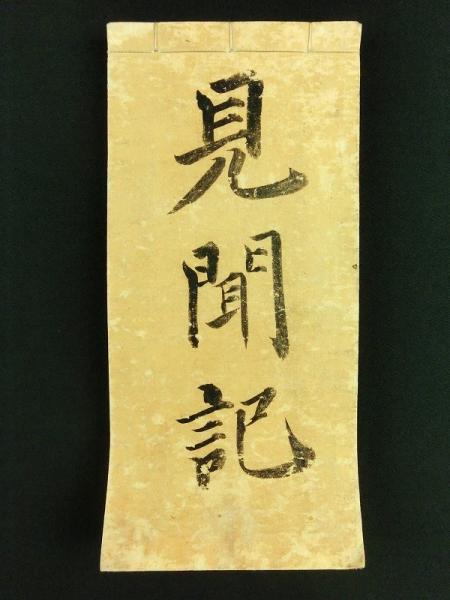 見聞記